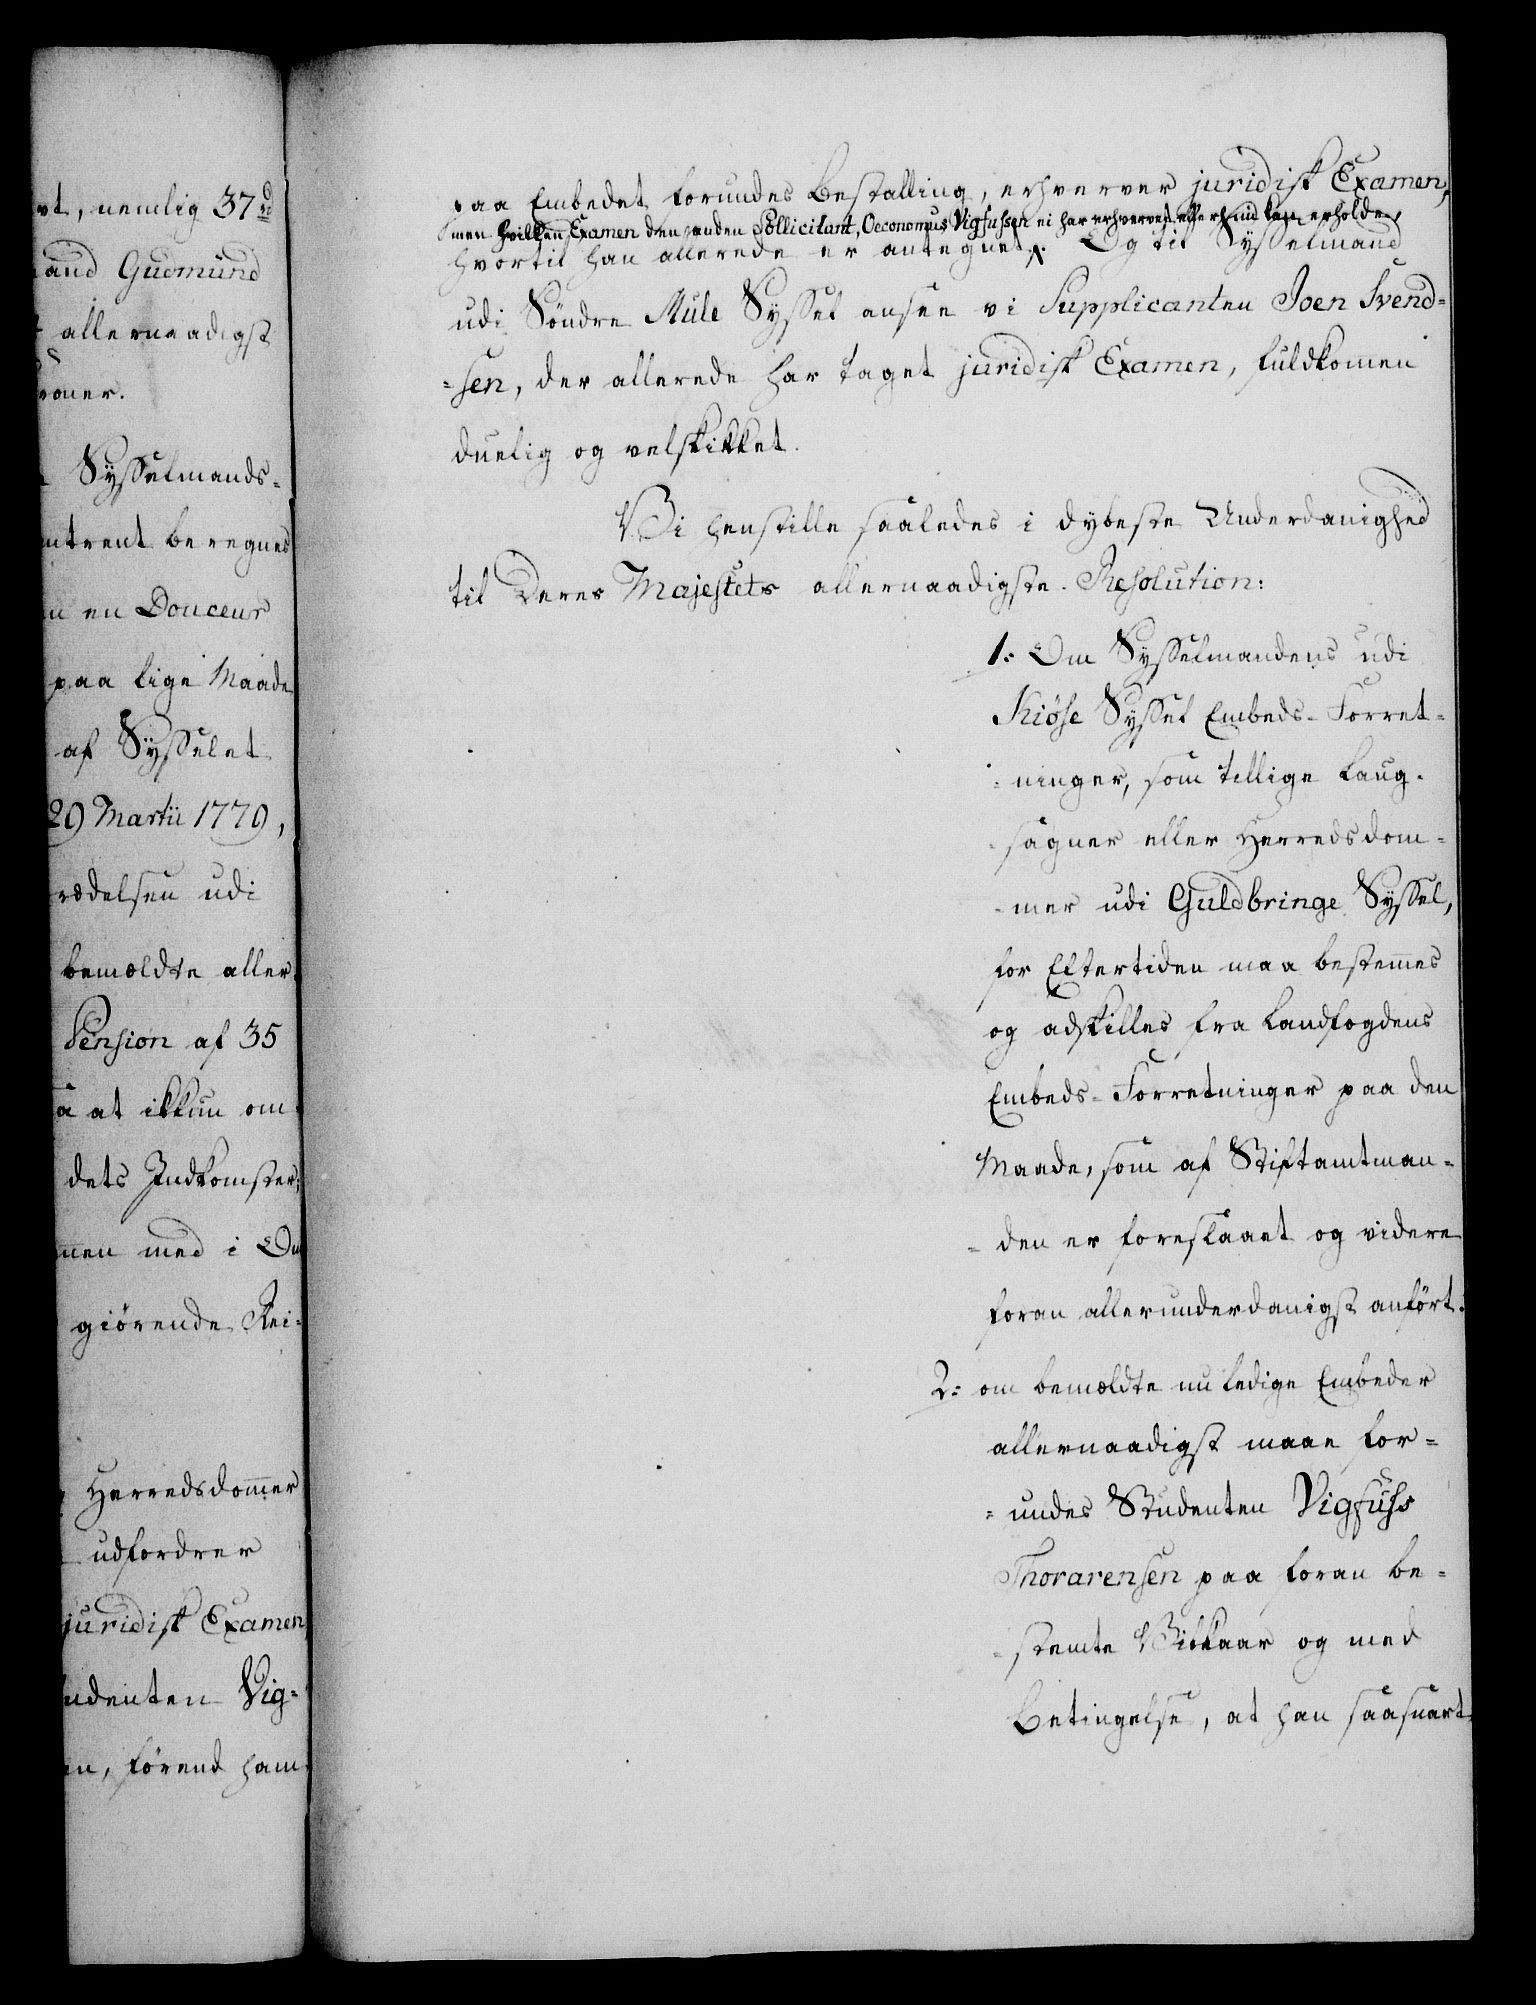 vt, nemlig 37 rd
and Gudmund
allernaadigst
roner.
Sysselmands-
mtrent beregnes
en Douceur
paa lige Maade
af Sysselet
29 Martii 1779,
rædelsen udi
bemældte aller
Pension af 35
a at ikkun om
dets Indkomster;
men med i
giörende Rei-
Herredsdom̄er
udfordrer
juridisk Examen
udenten Vig-
en, förend ham
paa Embedet forundes Bestalling, erhverver juridisk Examen,
men hvilken Examen den anden Sollicitant, Oeconomus Vigfussen ei har erhvervet eller kan erholde,
hvortil han allerede er antegnet. Og til Sysselmand
udi Söndre Mule Syssel ansee vi Supplicanten Joen Svend-
-sen, der allerede har taget juridisk Examen, fuldkomen
duelig og velskikket.
Vi henstille saaledes i dybeste Underdanighed
til Deres Majestets allernaadigste Resolution:
1: Om Sysselmandens udi
Kiöse Syssel Embeds-Forret-
-ninger, som tillige Laug-
-sagner eller Herredsdom-
-mer udi Guldbringe Syssel,
for Eftertiden maa bestem̄es
og adskilles fra Landfogdens
Embeds-Forretninger paa den
Maade, som af Stiftamtman-
-den er foreslaaet og videre
foran allerunderdanigst anfört.
2: om bemældte nu ledige Embeder
allernaadigst maae for-
-undes Studenten Vigfuss
Thorarensen paa foran be-
-stemte Vilkaar og med
Betingelse, at han saasnart